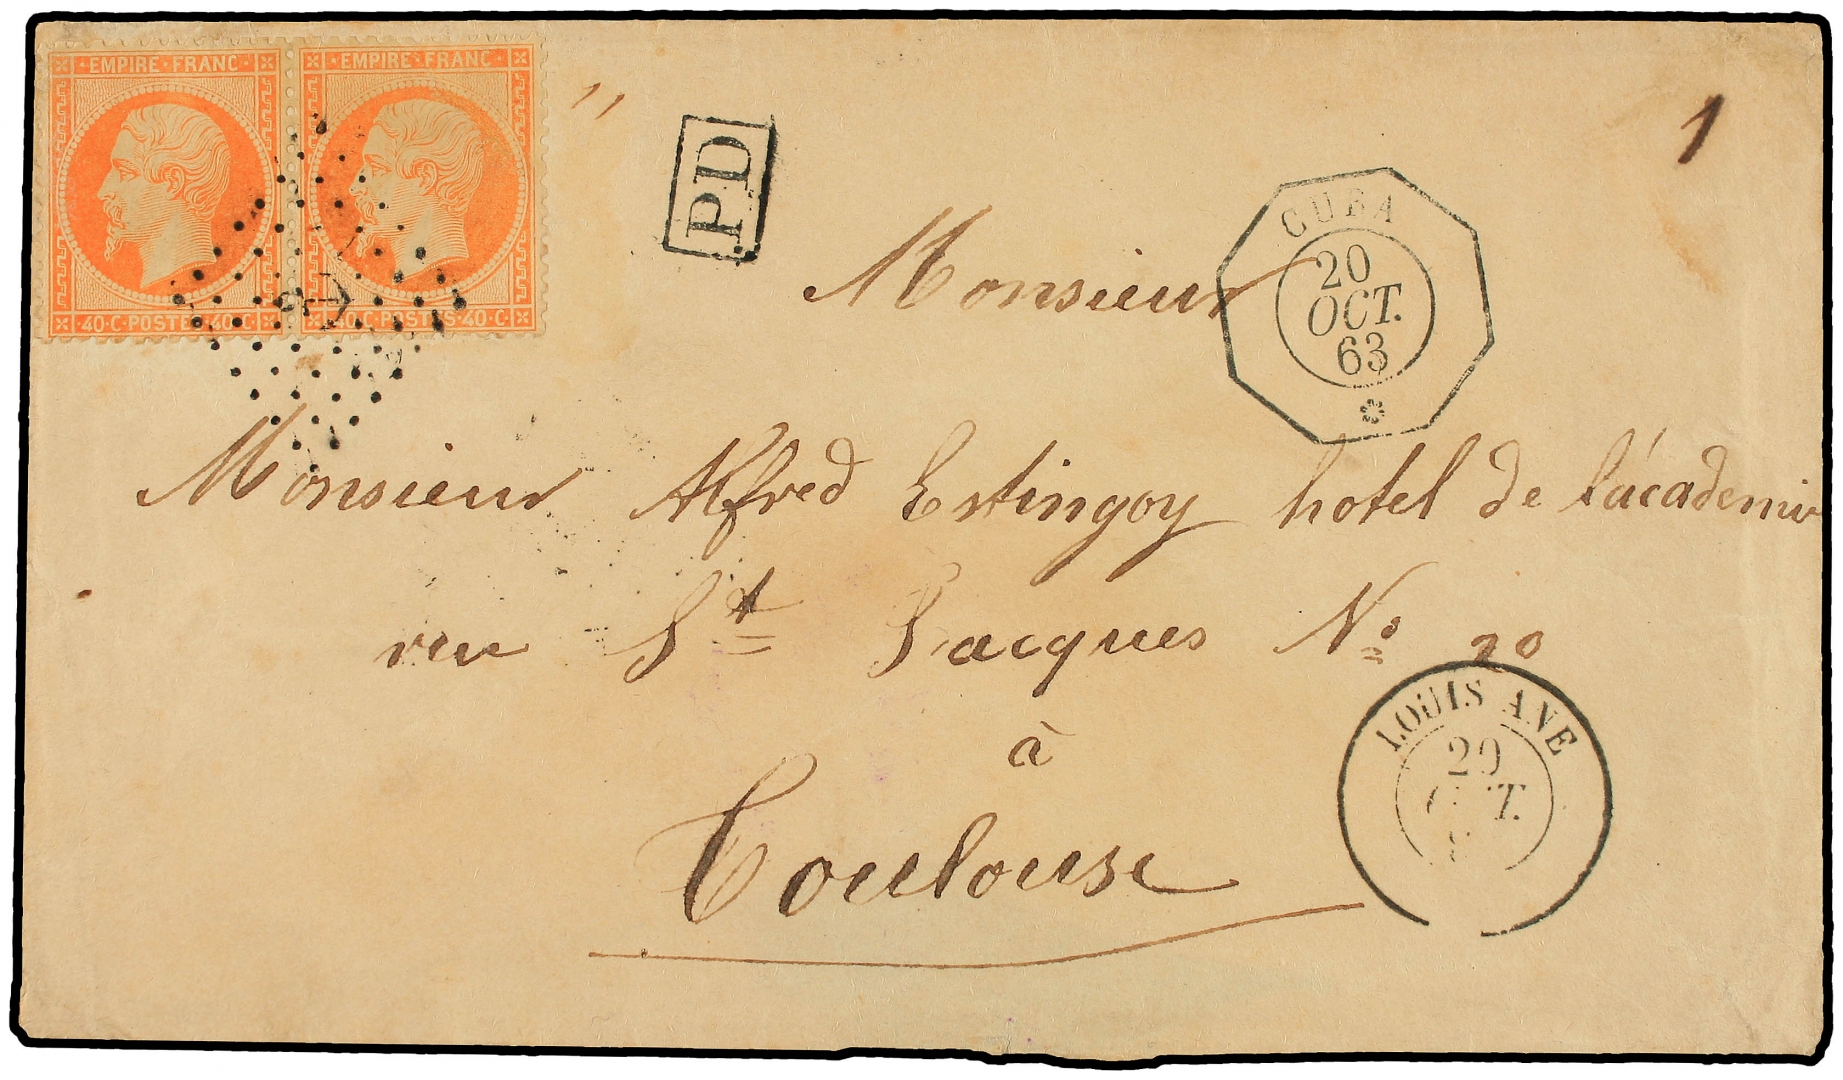 EMPIRE FRANC
EMPIRE FRANC
40·C·POSTES·40·C
40·C·POSTES·40·C·
PD
1
CUBA
20
OCT.
63
Monsieur
Monsieur Alfred Estingoy hotel de l'académie
rue St Jacques No 20
à
Toulouse
LOUIS ANE
20
OCT.